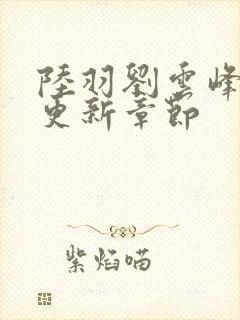 陸羽劉雲峰
更新章節
紫焰喵